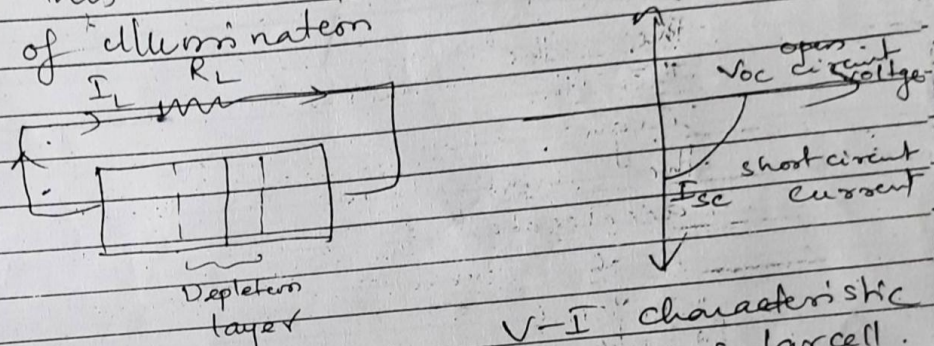 of illumination
I_L
R_L
Depletion
layer
open
Voc circuit
voltge
short circuit
Isc current
V-I characteristic
larcell.